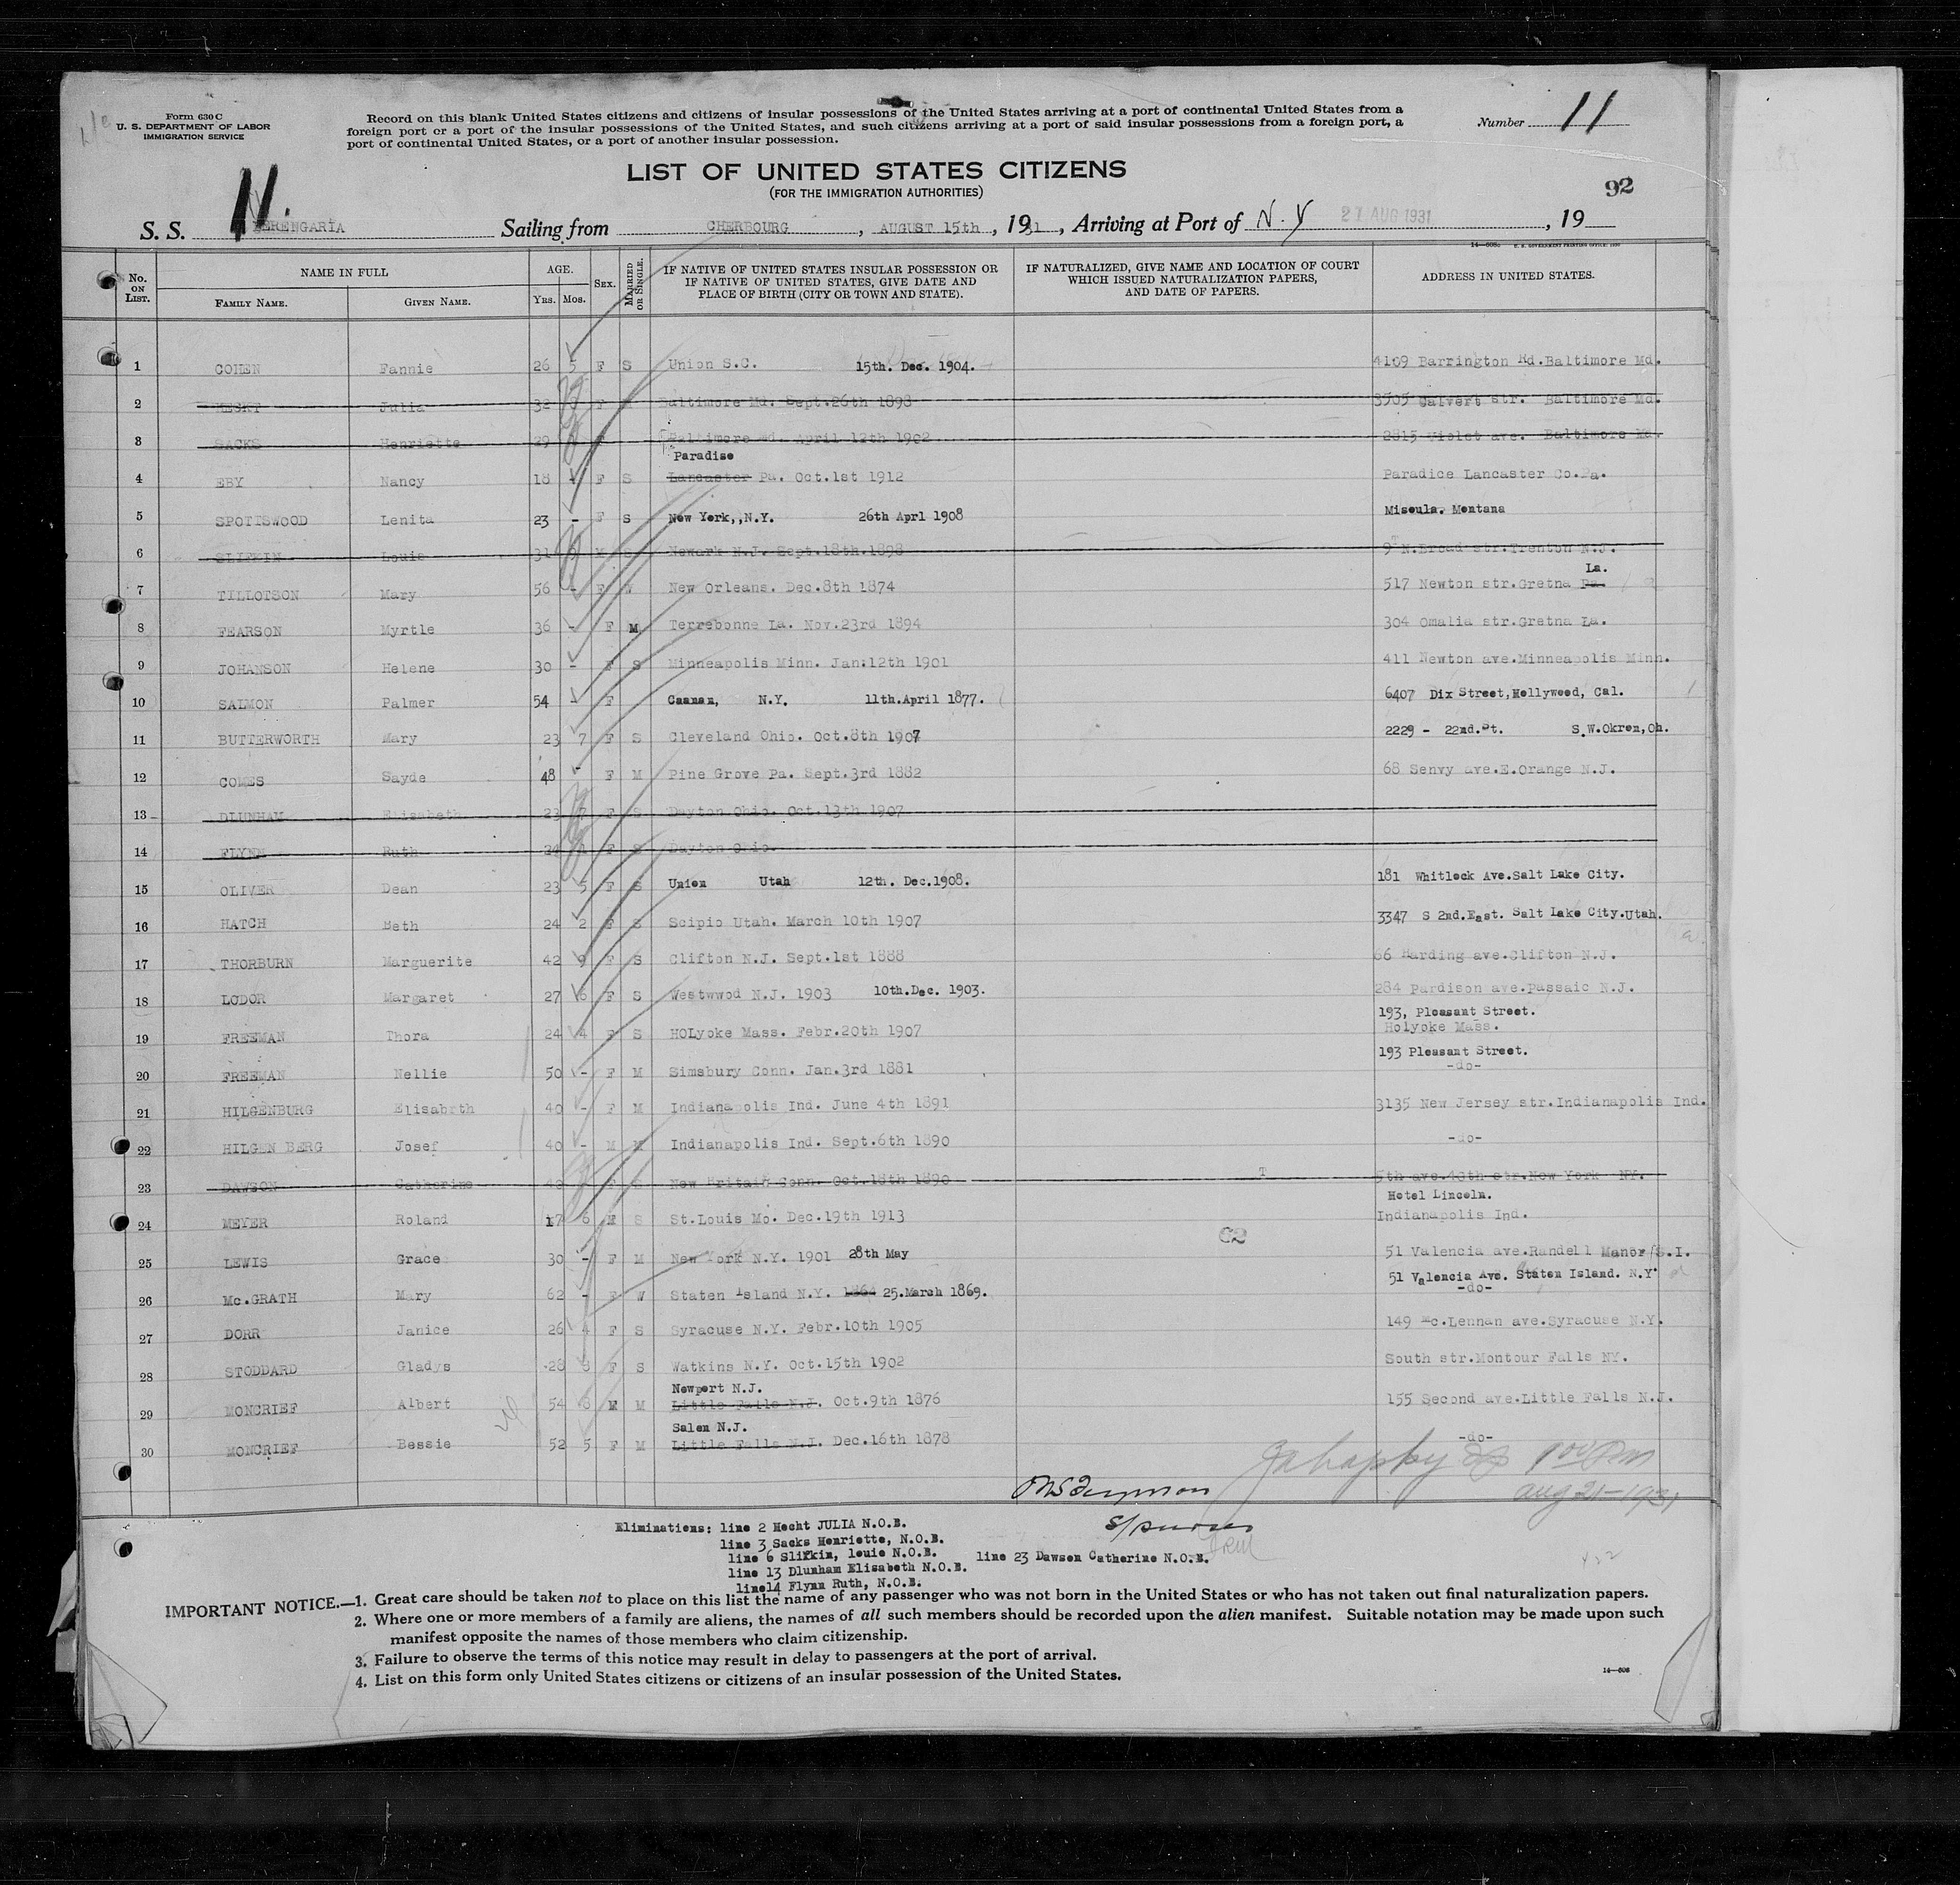 Form 630 C
U. S. DEPARTMENT OF LABOR
IMMIGRATION SERVICE
Record on this blank United States citizens and citizens of insular possessions of the United States arriving at a port of continental United States from a
foreign port or a port of the insular possessions of the United States, and such citizens arriving at a port of said insular possessions from a foreign port, a
port of continental United States, or a port of another insular possession.
Number 11
LIST OF UNITED STATES CITIZENS
(FOR THE IMMIGRATION AUTHORITIES)
92
11.
S. S. BERENGARIA Sailing from CHERBOURG, AUGUST 15th, 1931, Arriving at Port of N.Y 21 AUG 1931, 19
14—508a U. S. GOVERNMENT PRINTING OFFICE: 1930
No. ON LIST. NAME IN FULL FAMILY NAME. GIVEN NAME. AGE. Yrs. Mos. SEX. MARRIED OR SINGLE. IF NATIVE OF UNITED STATES INSULAR POSSESSION OR IF NATIVE OF UNITED STATES, GIVE DATE AND PLACE OF BIRTH (CITY OR TOWN AND STATE). IF NATURALIZED, GIVE NAME AND LOCATION OF COURT WHICH ISSUED NATURALIZATION PAPERS, AND DATE OF PAPERS. ADDRESS IN UNITED STATES.
1 COHEN Fannie 26 5 F S Union S.C. 15th. Dec. 1904. 4109 Barrington Rd.Baltimore Md.
2 Julia 32 F Baltimore Md. Sept.26th 1898 3505 Calvert str. Baltimore Md.
3 SACKS Henriette 29 F Baltimore Md. April 12th 1902 2815 Violet ave. Baltimore Md.
Paradise
4 EBY Nancy 18 F S Lancaster Pa. Oct.1st 1912 Paradice Lancaster Co.Pa.
5 SPOTISWOOD Lenita 23 - F S New York,,N.Y. 26th Aprl 1908 Misoula. Montana
6 SLIFKIN Louis 31 M S Newark N.J. Sept.18th.1898 N.Broad str.Trenton N.J.
La.
7 TILLOTSON Mary 56 - F W New Orleans. Dec.8th 1874 517 Newton str.Gretna Pa.
8 FEARSON Myrtle 36 - F M Terrebonne La. Nov.23rd 1894 304 Omalia str.Gretna La.
9 JOHANSON Helene 30 - F S Minneapolis Minn. Jan:12th 1901 411 Newton ave.Minneapolis Minn.
10 SALMON Palmer 54 - F Caanan, N.Y. 11th.April 1877. 6407 Dix Street,Hollywood, Cal.
11 BUTTERWORTH Mary 23 7 F S Cleveland Ohio. Oct.8th 1907 2229 - 22nd.St. S.W.Okren,Oh.
12 COMES Sayde 48 - F M Pine Grove Pa. Sept.3rd 1882 68 Senvy ave.E.Orange N.J.
13 DLUNHAM Elisabeth 23 7 F S Dayton Ohio. Oct.13th 1907
14 FLYNN Ruth F S Dayton Ohio.
15 OLIVER Dean 23 5 F S Union Utah 12th. Dec.1908. 181 Whitlock Ave.Salt Lake City.
16 HATCH Beth 24 2 F S Scipio Utah. March 10th 1907 3347 S 2nd.East. Salt Lake City.Utah.
17 THORBURN Marguerite 42 9 F S Clifton N.J. Sept.1st 1888 66 Harding ave.Clifton N.J.
18 LODOR Margaret 27 6 F S Westwwod N.J. 1903 10th.Dec. 1903. 284 Pardison ave.Passaic N.J.
193, Pleasant Street.
19 FREEMAN Thora 24 4 F S HOLyoke Mass. Febr.20th 1907 Holyoke Mass.
193 Pleasant Street.
20 FREEMAN Nellie 50 - F M Simsbury Conn. Jan.3rd 1881 -do-
21 HILGENBURG Elisabrth 40 - F M Indianapolis Ind. June 4th 1891 3135 New Jersey str.Indianapolis Ind.
22 HILGEN BERG Josef 40 - M M Indianapolis Ind. Sept.6th 1890 -do-
23 DAWSON Catherine F S New Britain Conn. Oct.18th 1890 5th ave.48th str.New York NY.
Hotel Lincoln.
24 MEYER Roland 17 6 M S St.Louis Mo. Dec.19th 1913 Indianapolis Ind.
62
25 LEWIS Grace 30 - F M New York N.Y. 1901 28th May 51 Valencia ave.Randell Manor/S.I.
51 Valencia Ave. Staten Island. N.Y.
26 Mc.GRATH Mary 62 - F W Staten Island N.Y. 1864 25.March 1869. -do-
27 DORR Janice 26 4 F S Syracuse N.Y. Febr.10th 1905 149 Mc.Lennan ave.Syracuse N.Y.
28 STODDARD Gladys 28 8 F S Watkins N.Y. Oct.15th 1902 South str.Montour Falls NY.
Newport N.J.
29 MONCRIEF Albert 54 6 M M Little Falls N.J. Oct.9th 1876 155 Second ave.Little Falls N.J.
Salem N.J.
30 MONCRIEF Bessie 52 5 F M Little Falls N.J. Dec.16th 1878 -do-
1 00 Pm
Aug 21-1931
Eliminations: line 2 Hecht JULIA N.O.B.
line 3 Sacks Henriette, N.O.B.
line 6 Slifkin, louie N.O.B. line 23 Dawson Catherine N.O.B.
line 13 Dlunham Elisabeth N.O.B.
line14 Flynn Ruth, N.O.B.
IMPORTANT NOTICE.—1. Great care should be taken not to place on this list the name of any passenger who was not born in the United States or who has not taken out final naturalization papers.
2. Where one or more members of a family are aliens, the names of all such members should be recorded upon the alien manifest. Suitable notation may be made upon such
manifest opposite the names of those members who claim citizenship.
3. Failure to observe the terms of this notice may result in delay to passengers at the port of arrival.
4. List on this form only United States citizens or citizens of an insular possession of the United States.
14—508